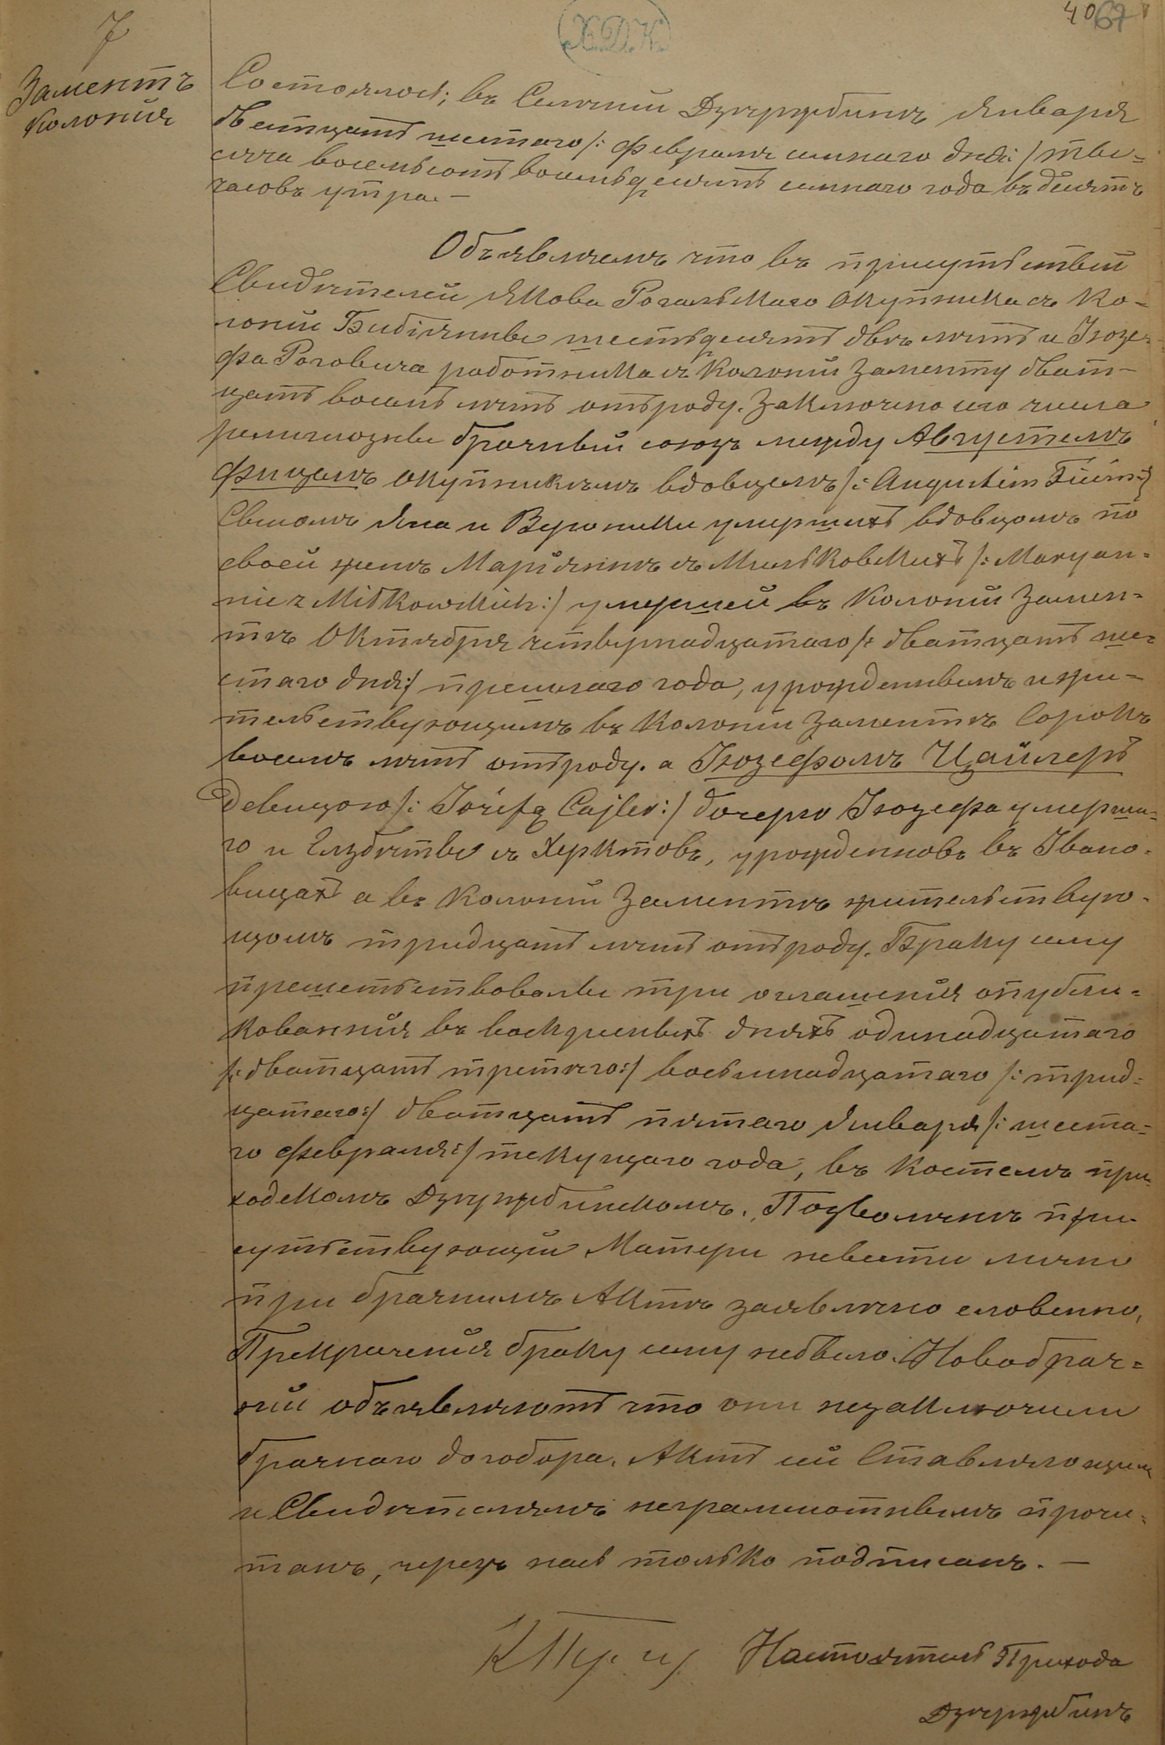 7
4067
Х.Д.К.
Заментъ
Колонія
Состоялось; въ Селеніи Дзержбинѣ Января
дватцать шестаго /: Февраля семнаго дня:/ тыс-
сяча восемьсотъ восемьдесятъ семнаго года въ десять
часовъ утра. —
Объявляемъ что въ присутствіи
Свидѣтелей Якова Рогальскаго Окупника съ Ко-
лоніи Бибіянны шестьдесятъ двѣ лѣтъ и Іозе-
фа Роговича работника съ Колоніи Заменту дват-
цать восемь лѣтъ отъ роду. Заключено сего числа
религіозны брачный союзъ между Августемъ
Фицемъ Окупникѣмъ вдовцемъ /: Augustim Ficim:/
Сыномъ Яна и Вероники умершихъ вдовцомъ по
своей женѣ Маріяннѣ съ Мильковскихъ /: Maryan-
nie z Milkowskich:/ умершей въ Колоніи Замен-
тѣ Октября четвернадцатаго /: дватцать ше-
стаго дня:/ прешлаго года, урожденнымъ и жи-
тельствующимъ въ Колоніи Заментѣ Сорокъ
восемъ лѣтъ отъ роду. а Іозефомъ Цайлеръ
Девицою /: Józefą Cajler:/ дочерю Іозефа умерша-
го и Елзбѣты съ Херктовъ, урожденновъ въ Ивано-
вицахъ а въ Колоніи Заментѣ жительствую-
щомъ тридцать лѣтъ отъ роду. Браку сему
прешетьствовалы три оглашенія опубли-
кованнія въ воскресныхъ дняхъ одинадцатаго
/: дватцать третяго:/ восьмнадцатаго /: трид-
цатаго:/ двадцать пятаго Января /: шеста-
го Февраля:/ текущаго года, въ Костелѣ при-
ходскомъ Дзержбинскомъ. Позволенѣ при-
сутьствующіи Матери невести лично
при брачнимъ Актѣ заявлено словенно,
Прекраченія браку сему небыло. Новобрач-
ніи объявляютъ что они незаключили
брачнаго договора. Актъ сій Ставляющимъ
и Свидѣтелямъ неграмотнымъ прочи-
танъ, черезъ насъ только подписанъ. —
Настоятель Прихода
Дзержбинъ